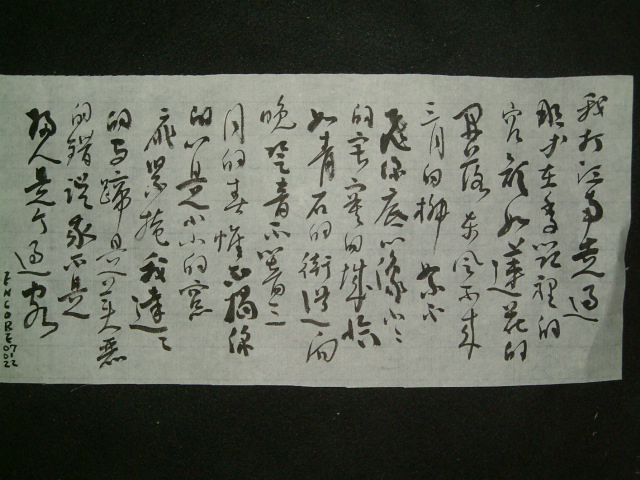 我打江南走過
那等在季節裡的
容顏如蓮花的
開落 東風不來
三月的柳絮不
飛 你底心像小小
的寂寞的城 恰
如青石的街道向
晚 跫音不響 三
月的春帷不揭 你
的心是小小的窗
扉緊掩 我達達
的馬蹄是美麗
的錯誤 我不是
歸人是个過客
ENCORE